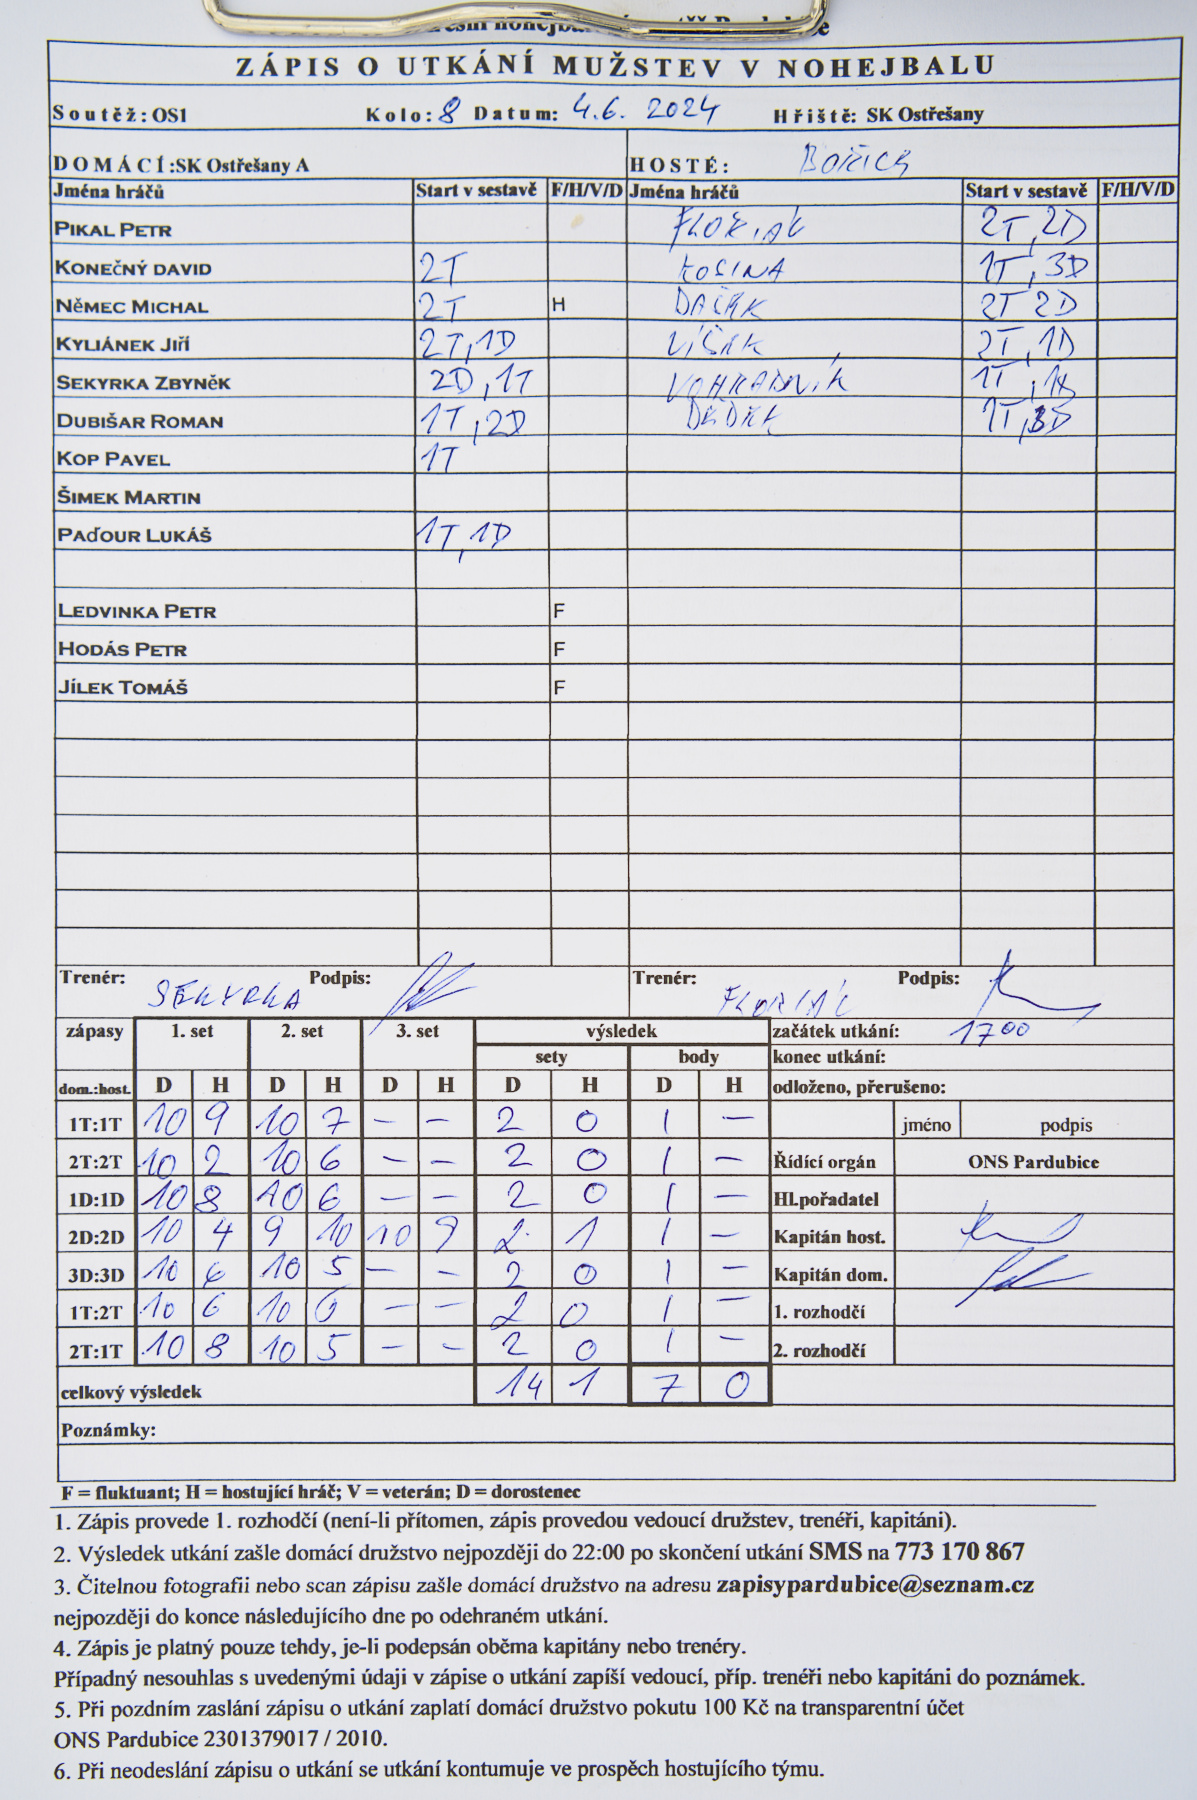 ZÁPIS O UTKÁNÍ MUŽSTEV V NOHEJBALU
Soutěž: OS1 Kolo: 8 Datum: 4.6. 2024 Hřiště: SK Ostřešany
DOMÁCÍ: SK Ostřešany A HOSTÉ:
Jména hráčů Start v sestavě F/H/V/D Jména hráčů Start v sestavě F/H/V/D
PIKAL PETR FLORIÁN 2T, 2D
KONEČNÝ DAVID 2T KOSINA 1T, 3D
NěMEC MICHAL 2T H DAČÁK 2T 2D
KYLIÁNEK JIří 2T,1D VÍŠEK 2T, 1D
SEKYRKA ZBYNěK 2D, 1T VOHRADNÍK 1T
DUBIŠAR ROMAN 1T, 2D DĚDEK 1T,3D
KOP PAVEL 1T
ŠIMEK MARTIN
PAďOUR LUKÁŠ 1T, 1D
LEDVINKA PETR F
HODÁS PETR F
JÍLEK TOMÁŠ F
Trenér: SEKYRKA Podpis: Trenér: FLORIÁN Podpis:
zápasy 1. set 2. set 3. set výsledek začátek utkání: 17 00
sety body konec utkání:
dom.:host. D H D H D H D H D H odloženo, přerušeno:
1T:1T 10 9 10 7 – – 2 0 1 – jméno podpis
2T:2T 10 2 10 6 – – 2 0 1 – Řídící orgán ONS Pardubice
1D:1D 10 8 10 6 – – 2 0 1 – Hl.pořadatel
2D:2D 10 4 9 10 10 9 2 1 1 – Kapitán host.
3D:3D 10 6 10 5 – – 2 0 1 – Kapitán dom.
1T:2T 10 6 10 6 – – 2 0 1 – 1. rozhodčí
2T:1T 10 8 10 5 – – 2 0 1 – 2. rozhodčí
celkový výsledek 14 1 7 0
Poznámky:
F = fluktuant; H = hostující hráč; V = veterán; D = dorostenec
1. Zápis provede 1. rozhodčí (není-li přítomen, zápis provedou vedoucí družstev, trenéři, kapitáni).
2. Výsledek utkání zašle domácí družstvo nejpozději do 22:00 po skončení utkání SMS na 773 170 867
3. Čitelnou fotografii nebo scan zápisu zašle domácí družstvo na adresu zapisypardubice@seznam.cz
nejpozději do konce následujícího dne po odehraném utkání.
4. Zápis je platný pouze tehdy, je-li podepsán oběma kapitány nebo trenéry.
Případný nesouhlas s uvedenými údaji v zápise o utkání zapíší vedoucí, příp. trenéři nebo kapitáni do poznámek.
5. Při pozdním zaslání zápisu o utkání zaplatí domácí družstvo pokutu 100 Kč na transparentní účet
ONS Pardubice 2301379017 / 2010.
6. Při neodeslání zápisu o utkání se utkání kontumuje ve prospěch hostujícího týmu.